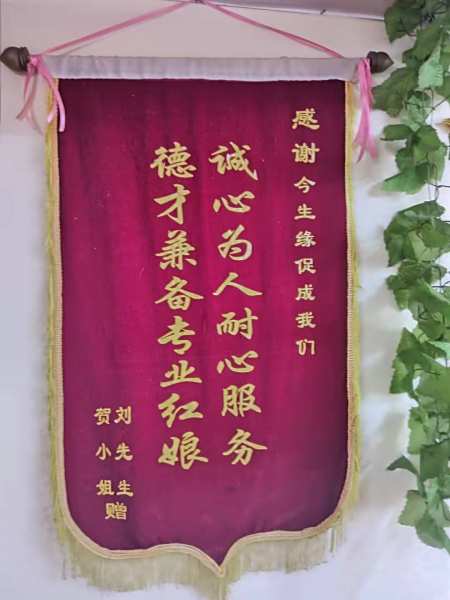 感谢今生缘促成我们
诚心为人耐心服务
德才兼备专业红娘
刘先生
贺小姐
赠